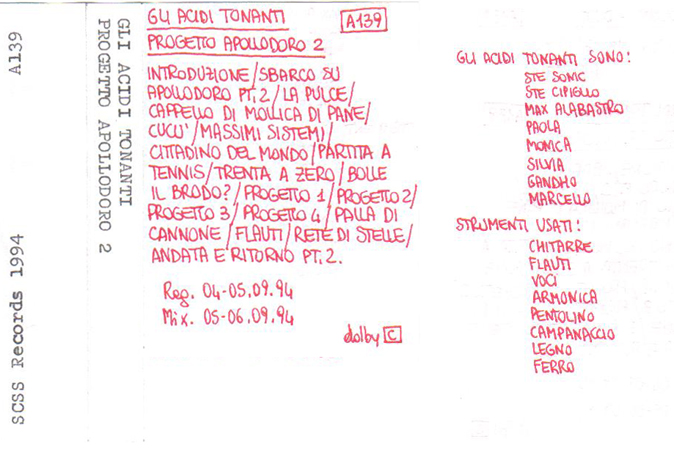 A139
SCSS Records 1994
GLI ACIDI TONANTI
PROGETTO APOLLODORO 2
GLI ACIDI TONANTI
A139
PROGETTO APOLLODORO 2
INTRODUZIONE/SBARCO SU
APOLLODORO PT.2/LA PULCE/
CAPPELLO DI MOLLICA DI PANE/
CUCU'/MASSIMI SISTEMI/
CITTADINO DEL MONDO/PARTITA A
TENNIS/TRENTA A ZERO/BOLLE
IL BRODO?/PROGETTO 1/PROGETTO 2/
PROGETTO 3/PROGETTO 4/PALLA DI
CANNONE/FLAUTI/RETE DI STELLE/
ANDATA E RITORNO PT.2.
Reg. 04-05.09.94
Mix. 05-06.09.94
dolby C
GLI ACIDI TONANTI SONO:
STE SONIC
STE CIPIELLO
MAX ALABASTRO
PAOLA
MONICA
SILVIA
GANDHO
MARCELLO
STRUMENTI USATI:
CHITARRE
FLAUTI
VOCI
ARMONICA
PENTOLINO
CAMPANACCIO
LEGNO
FERRO